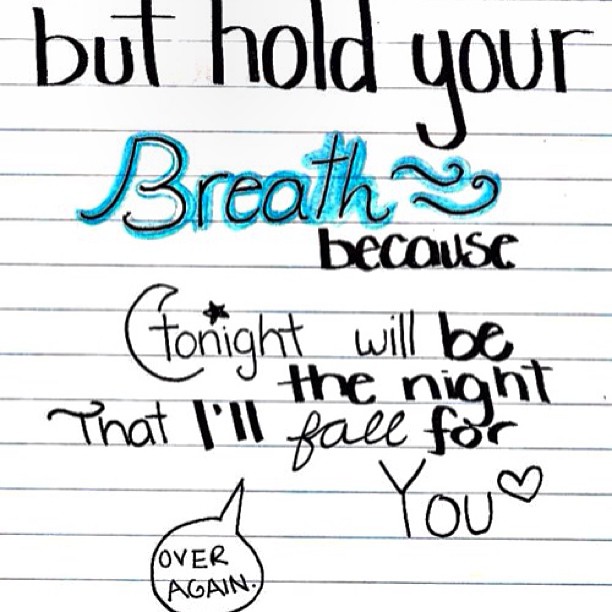 but hold your
Breath
because
tonight will be
the night
That I'll fall for
You
OVER
AGAIN.